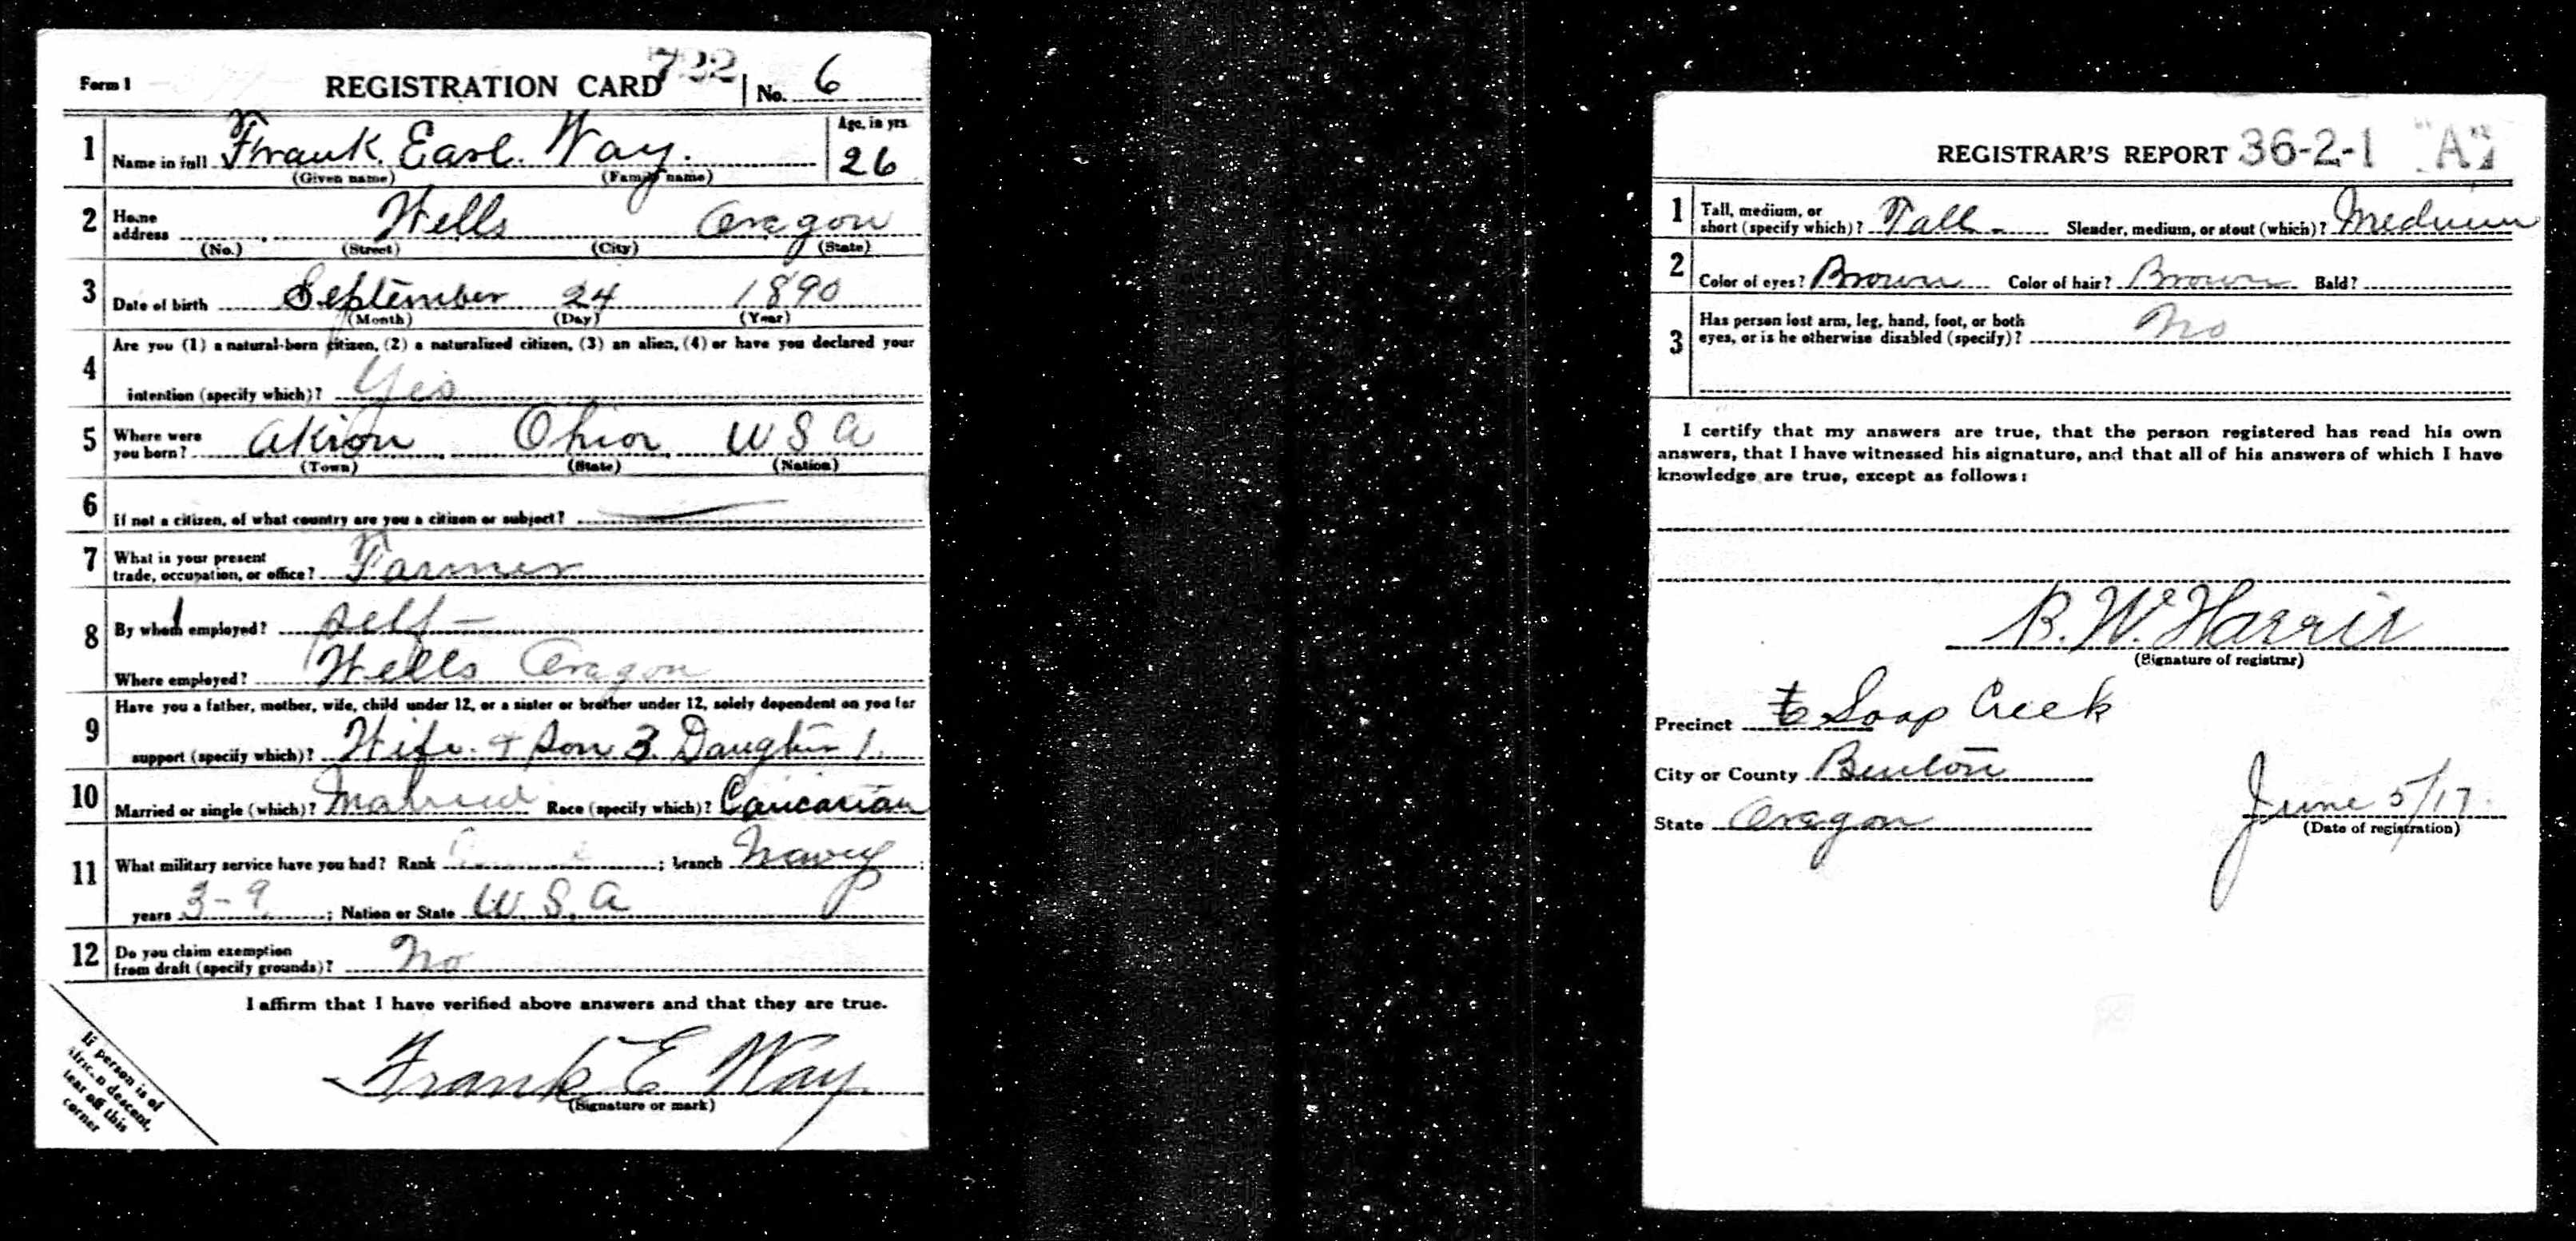 Form 1 REGISTRATION CARD 722 No. 6
1 Name in full Frank. Earl. Way. Age, in yrs. 26
(Given name) (Family name)
2 Home address Wells Oregon
(No.) (Street) (City) (State)
3 Date of birth September 24 1890
(Month) (Day) (Year)
4 Are you (1) a natural-born citizen, (2) a naturalized citizen, (3) an alien, (4) or have you declared your
intention (specify which)? Yes
5 Where were you born? Akron Ohio. U S A
(Town) (State) (Nation)
6 If not a citizen, of what country are you a citizen or subject?
7 What is your present
trade, occupation, or office? Farmer
8 By whom employed? Self -
Where employed? Wells Oregon
9 Have you a father, mother, wife, child under 12, or a sister or brother under 12, solely dependent on you for
support (specify which)? Wife. + Son 3. Daughter 1.
10 Married or single (which)? Married Race (specify which)? Caucasian
11 What military service have you had? Rank ; branch Navy ;
years 3-9 ; Nation or State U. S. A
12 Do you claim exemption
from draft (specify grounds)? No
I affirm that I have verified above answers and that they are true.
Frank E Way
(Signature or mark)
If person is of
African descent,
tear off this
corner
REGISTRAR'S REPORT 36-2-1 "A"
1 Tall, medium, or
short (specify which)? Tall Slender, medium, or stout (which)? Medium
2 Color of eyes? Brown Color of hair? Brown Bald?
3 Has person lost arm, leg, hand, foot, or both
eyes, or is he otherwise disabled (specify)? No
I certify that my answers are true, that the person registered has read his own
answers, that I have witnessed his signature, and that all of his answers of which I have
knowledge are true, except as follows:
B. W. Harris
(Signature of registrar)
Precinct Soap Creek
City or County Benton
State Oregon June 5/17
(Date of registration)